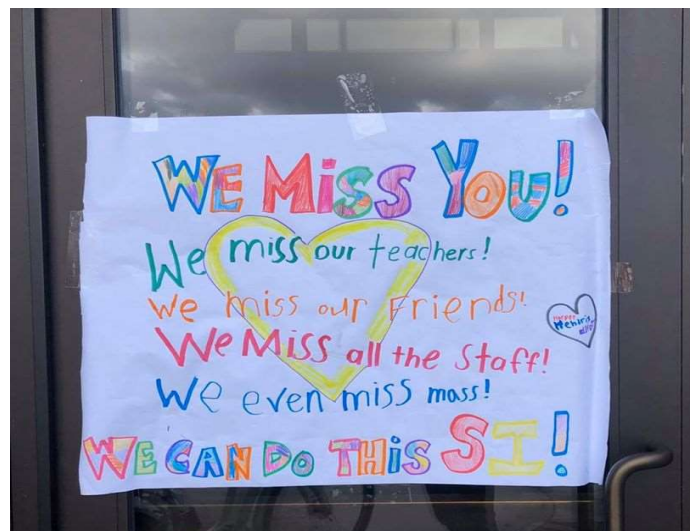 WE MiSS YOU!
We miss our teachers!
We miss our Friends!
We Miss all the Staff!
We even miss mass!
WE CAN DO THiS SI!